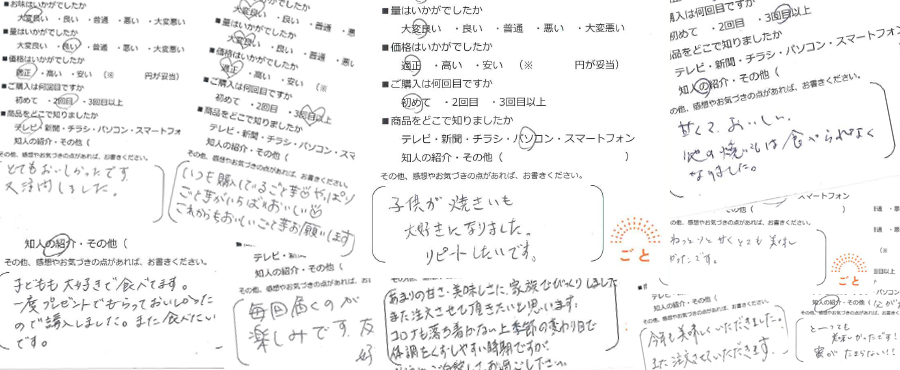 ■お味はいかがでしたか
大変良い ・良い ・普通 ・悪い ・大変悪い
■量はいかがでしたか
大変良い ・良い ・普通 ・悪い ・大変悪い
■価格はいかがでしたか
適正 ・高い ・安い （※ 円が妥当）
■ご購入は何回目ですか
初めて ・2回目 ・3回目以上
■商品をどこで知りましたか
テレビ・新聞・チラシ・パソコン・スマートフォ
知人の紹介・その他（
その他、感想やお気づきの点があれば、お書きください。
とてもおいしかったです
大変良い ・良い ・普通
■量はいかがでしたか
大変良い ・良い ・普通 ・悪
■価格はいかがでしたか
適正 ・高い ・安い （※
■ご購入は何回目ですか
初めて ・2回目 ・3回目以上
■商品をどこで知りましたか
テレビ・新聞・チラシ・パソコン・スマ
知人の紹介・その他（
その他、感想やお気づきの点があれば、お書きください。
いつも購入しているごと芋やっぱり
ごと芋がいちばんおいしい
これからもおいしいごと芋お願いします
■量はいかがでしたか
大変良い ・良い ・普通 ・悪い ・大変悪い
■価格はいかがでしたか
適正 ・高い ・安い （※ 円が妥当）
■ご購入は何回目ですか
初めて ・2回目 ・3回目以上
■商品をどこで知りましたか
テレビ・新聞・チラシ・パソコン・スマートフォン
知人の紹介・その他（ ）
その他、感想やお気づきの点があれば、お書きください。
子供が焼きいも
大好きになりました。
リピートしたいです。
購入は何回目ですか
初めて ・2回目 ・3回目以上
商品をどこで知りましたか
テレビ・新聞・チラシ・パソコン・スマートフォン
知人の紹介・その他（
の他、感想やお気づきの点があれば、お書きください。
甘くて、おいしい。
他の焼いもは食べられなく
なりました。
ごと
知人の紹介・その他（
その他、感想やお気づきの点があれば、お書きください。
子どもも大好きで食べてます。
一度プレゼントでもらっておいしかった
ので購入しました。また食べたい
です。
テレビ・新
知人の紹介・その他（
その他、感想やお気づきの点があれば、お
毎回届くのが
楽しみです。友
あまりの甘さ、美味しさに、家族でびっくりしました
また注文させて頂きたいと思います。
コロナも落ち着かない上季節の変わり目で
体調をくずしやすい時期ですが、
スマートフォン
の他、感想やお気づきの点があれば、お書きください。
ねっとりと甘くとても美味し
かったです。
ごと
テレビ・
知人の紹介・その他（
その他、感想やお気づきの点があれば、お書きください。
今年も美味しくいただきました。
また注文させていただきます。
知人の紹介・その他（
その他、感想やお気づきの点があれば、お書きください。
とーっても
美味しかったです！
蜜がたまらない！！